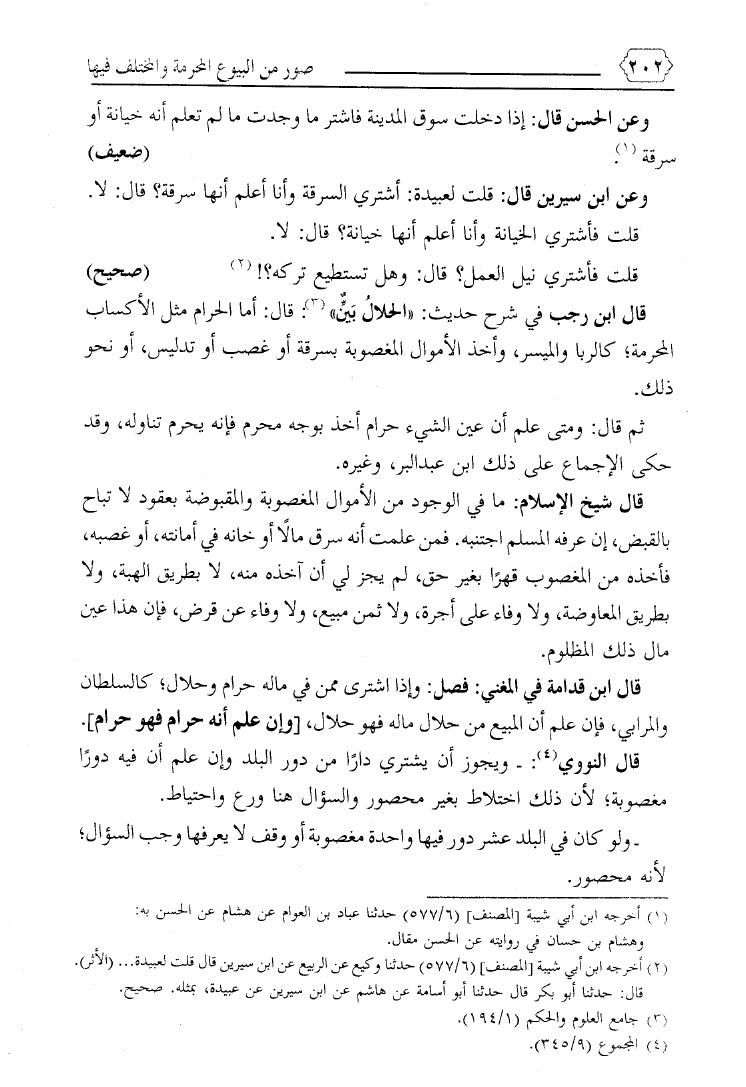 ٢٠٢ صور من البيوع المحرمة والمختلف فيها
وعن الحسن قال: إذا دخلت سوق المدينة فاشتر ما وجدت ما لم تعلم أنه خيانة أو
سرقة (١). (ضعيف)
وعن ابن سيرين قال: قلت لعبيدة: أشتري السرقة وأنا أعلم أنها سرقة؟ قال: لا.
قلت فأشتري الخيانة وأنا أعلم أنها خيانة؟ قال: لا.
قلت فأشتري نيل العمل؟ قال: وهل تستطيع تركه؟! (٢) (صحيح)
قال ابن رجب في شرح حديث: «الحلالُ بَيِّنٌ» (٣): قال: أما الحرام مثل الأكساب
المحرمة؛ كالربا والميسر، وأخذ الأموال المغصوبة بسرقة أو غصب أو تدليس، أو نحو
ذلك.
ثم قال: ومتى علم أن عين الشيء حرام أخذ بوجه محرم فإنه يحرم تناوله، وقد
حكى الإجماع على ذلك ابن عبدالبر، وغيره.
قال شيخ الإسلام: ما في الوجود من الأموال المغصوبة والمقبوضة بعقود لا تباح
بالقبض، إن عرفه المسلم اجتنبه. فمن علمت أنه سرق مالًا أو خانه في أمانته، أو غصبه،
فأخذه من المغصوب قهرًا بغير حق، لم يجز لي أن آخذه منه، لا بطريق الهبة، ولا
بطريق المعاوضة، ولا وفاء على أجرة، ولا ثمن مبيع، ولا وفاء عن قرض، فإن هذا عين
مال ذلك المظلوم.
قال ابن قدامة في المغني: فصل: وإذا اشترى ممن في ماله حرام وحلال؛ كالسلطان
والمرابي، فإن علم أن المبيع من حلال ماله فهو حلال، [وإن علم أنه حرام فهو حرام].
قال النووي(٤): ـ ويجوز أن يشتري دارًا من دور البلد وإن علم أن فيه دورًا
مغصوبة؛ لأن ذلك اختلاط بغير محصور والسؤال هنا ورع واحتياط.
ـ ولو كان في البلد عشر دور فيها واحدة مغصوبة أو وقف لا يعرفها وجب السؤال؛
لأنه محصور.
(١) أخرجه ابن أبي شيبة [المصنف] (٥٧٧/٦) حدثنا عباد بن العوام عن هشام عن الحسن به:
وهشام بن حسان في روايته عن الحسن مقال.
(٢) أخرجه ابن أبي شيبة [المصنف] (٥٧٧/٦) حدثنا وكيع عن الربيع عن ابن سيرين قال قلت لعبيدة... (الأثر).
قال: حدثنا أبو بكر قال حدثنا أبو أسامة عن هاشم عن ابن سيرين عن عبيدة، بمثله. صحيح.
(٣) جامع العلوم والحكم (١٩٤/١).
(٤) المجموع (٣٤٥/٩).